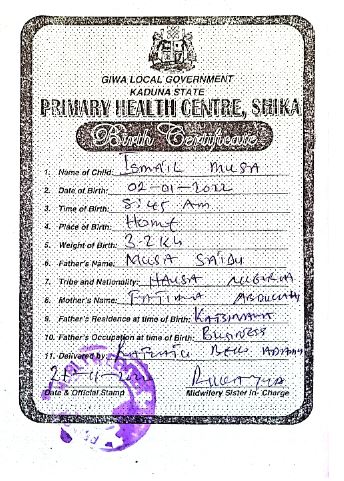 GIWA LOCAL GOVERNMENT
KADUNA STATE
PRIMARY HEALTH CENTRE, SHIKA
Birth Certificate
1. Name of Child: ISMAIL MUSA
2. Date of Birth: 02-01-2022
3. Time of Birth: 8:45 Am
4. Place of Birth: Home
5. Weight of Birth: 3.2KG
6. Father's Name: MUSA SAIDU
7. Tribe and Nationality: HAUSA NIGERIA
8. Mother's Name: FATIMA
9. Father's Residence at time of Birth:
10. Father's Occupation at time of Birth: BUSINESS
11. Delivered by:
Date & Official Stamp Midwifery Sister In- Charge